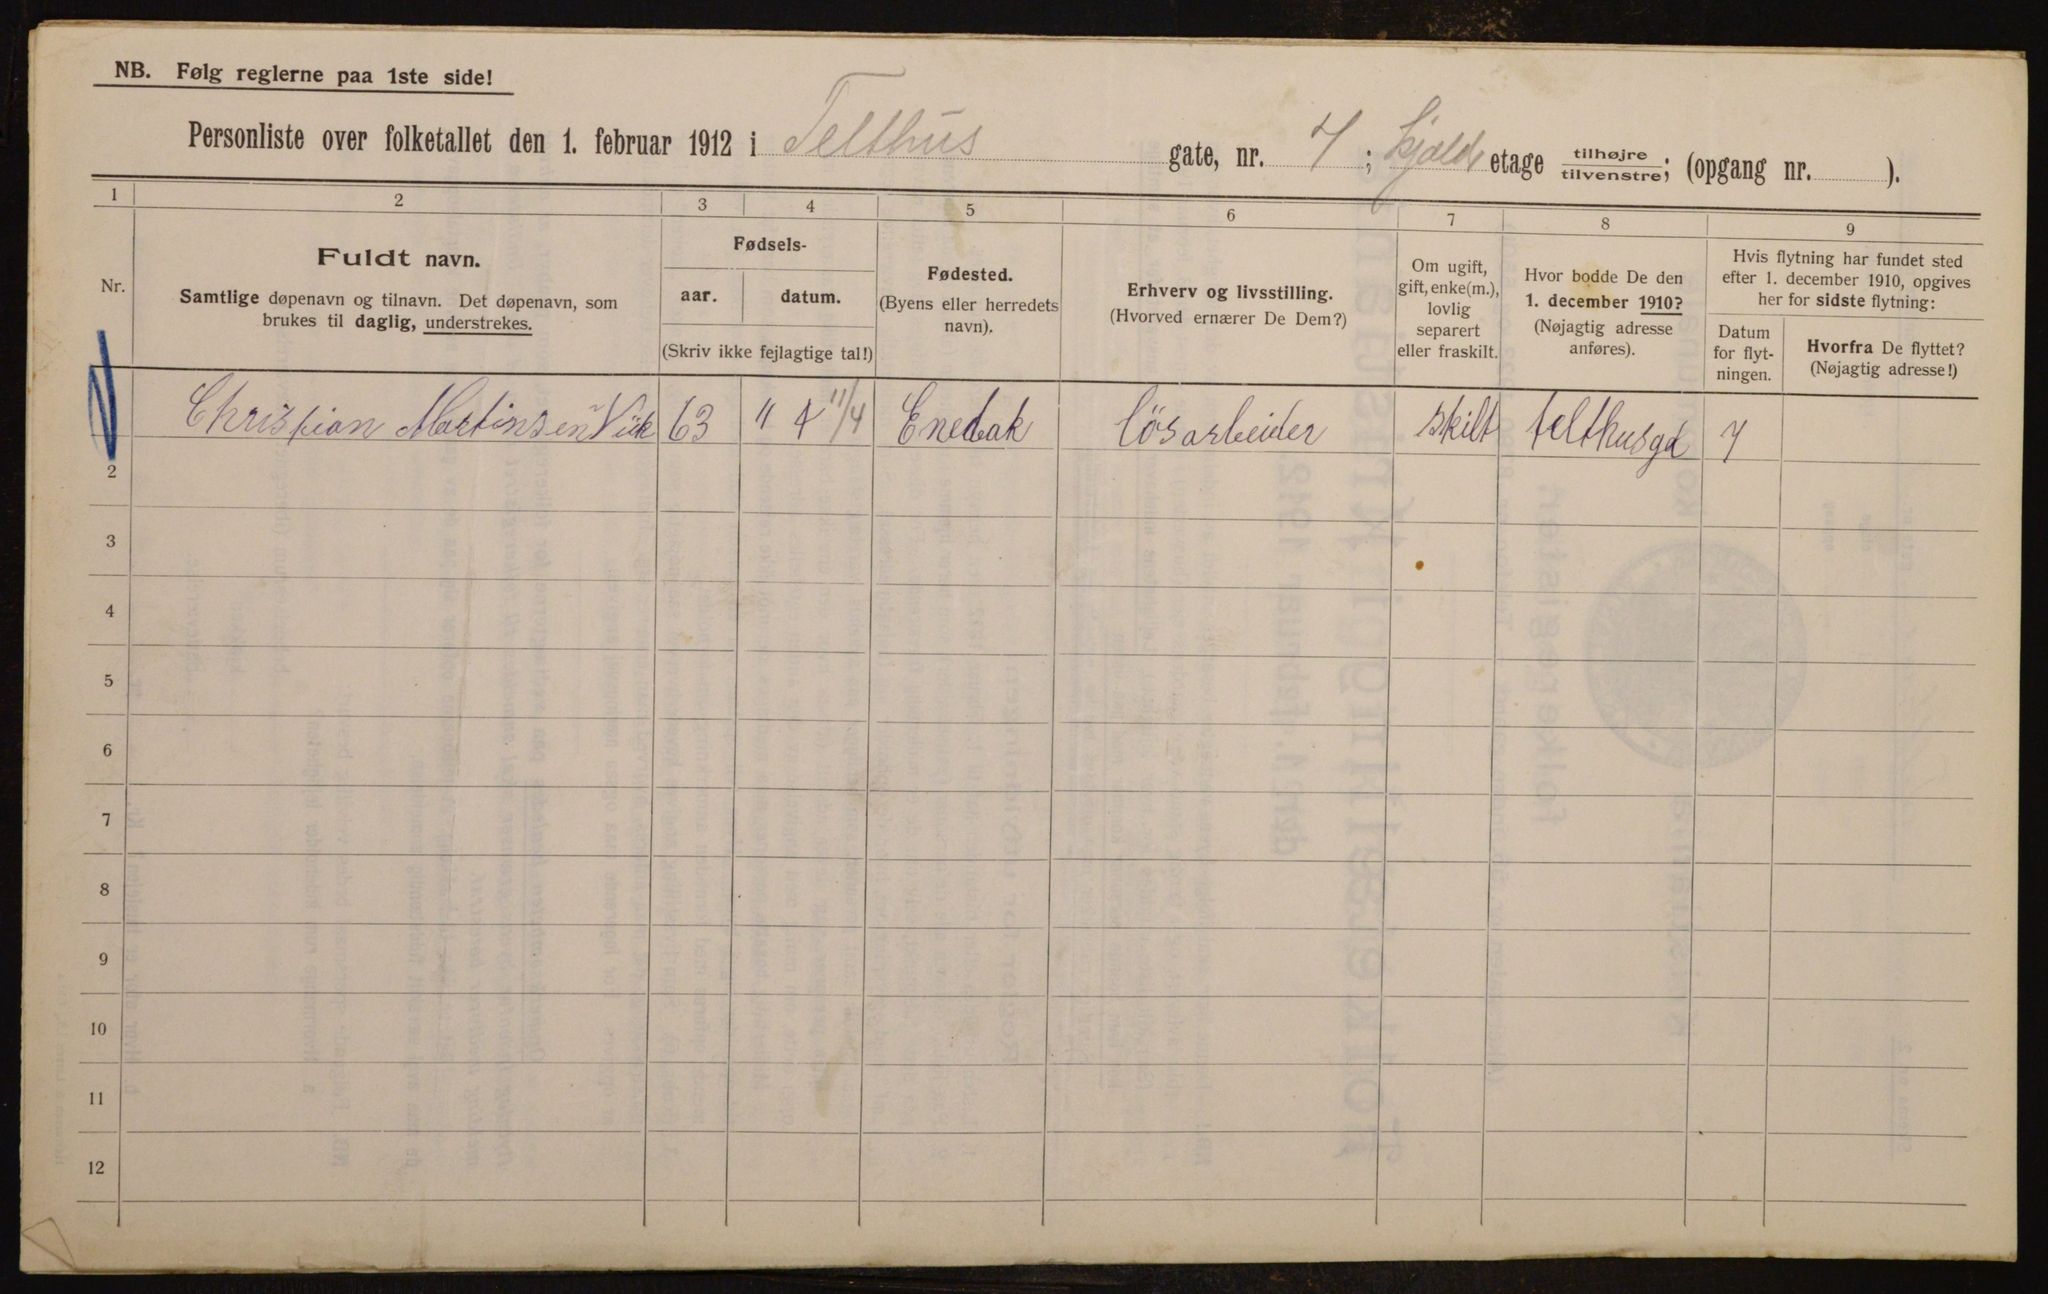 NB. Følg reglerne paa 1ste side!
Personliste over folketallet den 1. februar 1912 i Telthus gate, nr. 7; kjeld etage tilhøjre/tilvenstre; (opgang nr. ).
1 2 3 4 5 6 7 8 9
Nr.
Fuldt navn.
Samtlige døpenavn og tilnavn. Det døpenavn, som
brukes til daglig, understrekes.
Fødsels-
aar. datum.
(Skriv ikke fejlagtige tal!)
Fødested.
(Byens eller herredets
navn).
Erhverv og livsstilling.
(Hvorved ernærer De Dem?)
Om ugift,
gift, enke(m.),
lovlig
separert
eller fraskilt.
Hvor bodde De den
1. december 1910?
(Nøjagtig adresse
anføres).
Hvis flytning har fundet sted
efter 1. december 1910, opgives
her for sidste flytning:
Datum
for flyt-
ningen.
Hvorfra De flyttet?
(Nøjagtig adresse!)
Christian Martinsen Viik 63 " 4 11/4 Enebak lösarbeider skilt telthusgd 7
2
3
4
5
6
7
8
9
10
11
12